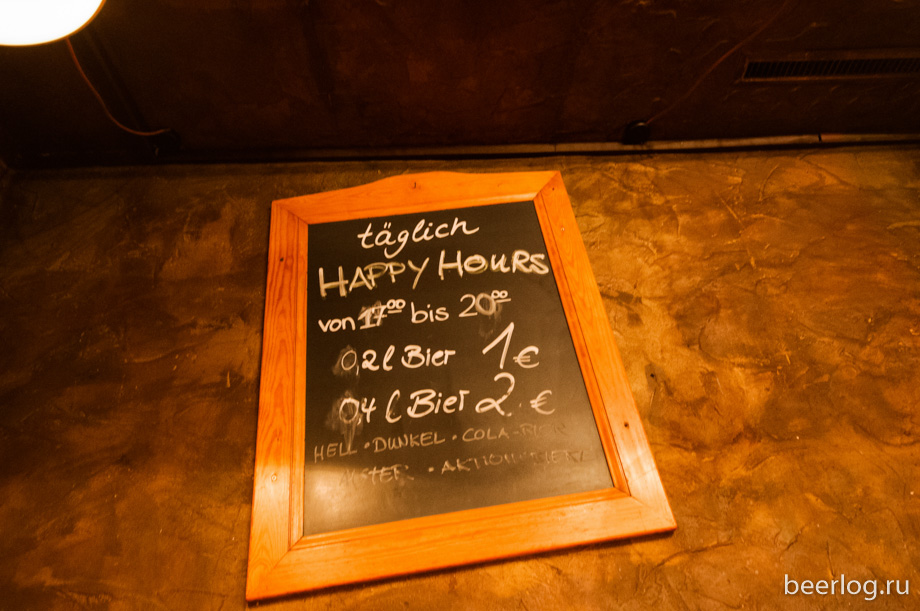 täglich
HAPPY HOURS
von 17⁰⁰ bis 20⁰⁰
0,2 l Bier 1 €
0,4 l Bier 2 €
HELL • DUNKEL • COLA-BIER
ALSTER •
beerlog.ru